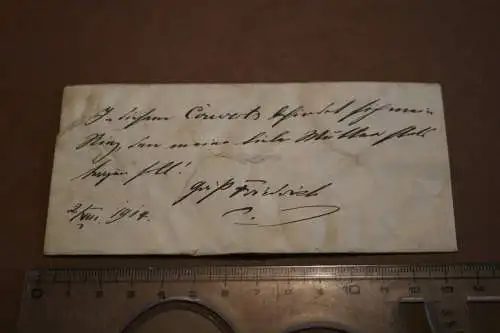 In diesem Couvert befindet sich mein
Ring, den meine liebe Mutter stets
tragen soll!
Friedrich
2/VIII. 1914.
0 1 2 3 4 5 6 7 8 9 10 11 12 13 14